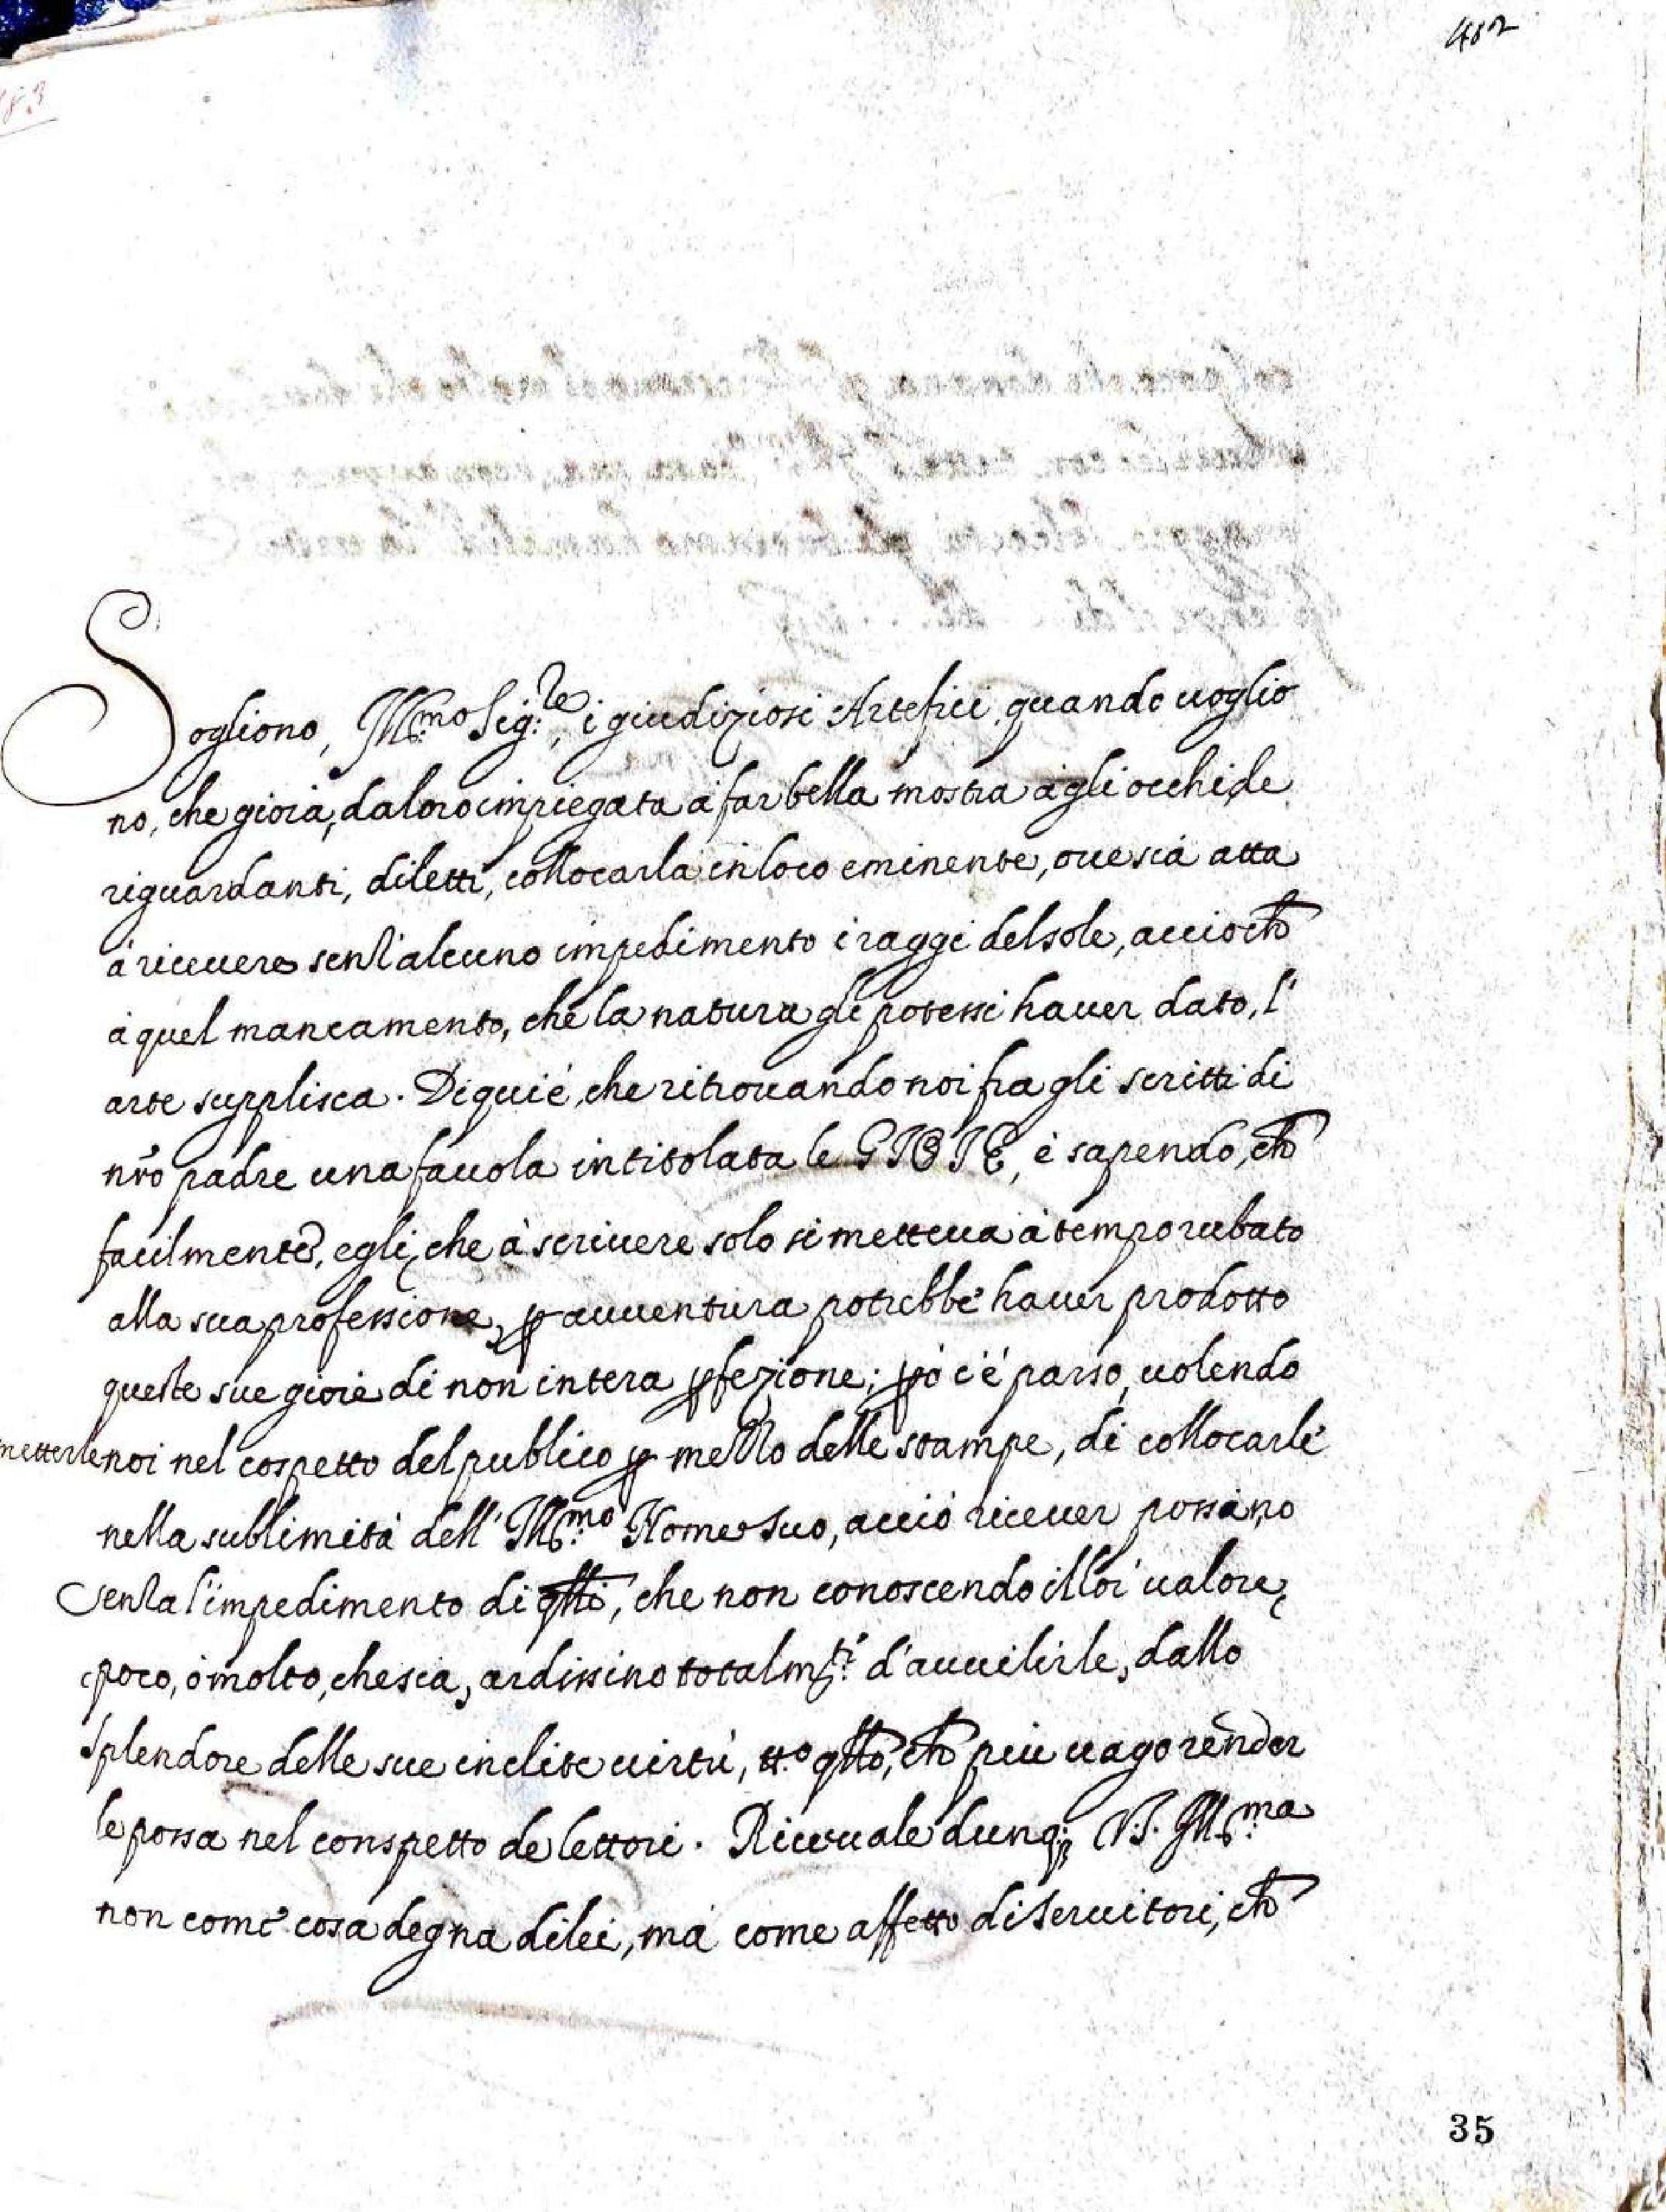 482
83
Sogliono, Ill:mo Sig:re, i giudiziosi Artefici, quando uoglio
no, che gioia, da loro impiegata à far bella mostra à gli occhi de
riguardanti, diletti, collocarla in loco eminente, oue sia atta
à riceuere senz'alcuno impedimento i raggi del sole, acciochē
à quel mancamento, che la natura gli potessi hauer dato, l'
arte supplisca. Di qui é, che ritrouando noi fra gli scritti di
nr̃o padre una fauola intitolata le GIOIE, è sapendo, chē
facilmente, egli, che à scriuere solo si metteua à tempo rubato
alla sua professione, ꝑ auuentura potrebbe hauer prodotto
queste sue gioie di non intera ꝑfezione; ꝑò c'é parso, uolendo
metterle noi nel cospetto del publico ꝑ mezzo delle stampe, di collocarle
nella sublimità dell' Ill:mo Nome suo, acciò riceuer possano
senza l'impedimento di q̃lli, che non conoscendo il lor ualore,
poco, ò molto, che sia, ardissino totalm:ti d'auuilirle, dallo
splendore delle sue inclite uirtù, tt:o q̃llo, chē piu uago render
le possa nel conspetto de lettori. Riceuale dunq; V.S. Ill:ma
non come cosa degna di lei, mà come affetto di seruitori, chē
35